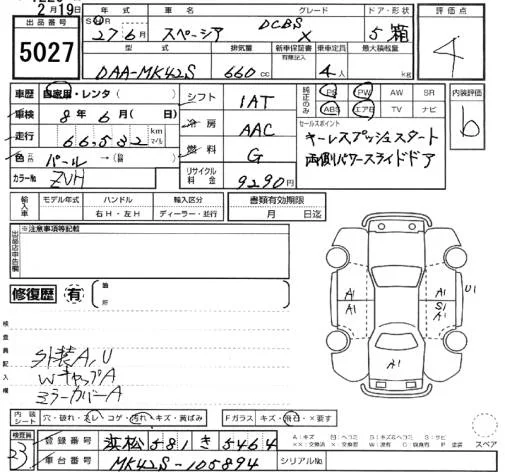 2月19日
出品番号 5027
年式 車名 グレード ドア・形状 評価点
27年6月 スペーシア DCBS X 5 箱 4
型式 排気量 新車保証書 有際記入 乗車定員 最大積載量
DAA-MK42S 660cc 4人 kg
車歴 自家用・レンタ( )
車検 8年6月( 日)
走行 66,532 km マイル
色 パール →( )
カラーNo ZVH
シフト 1AT
冷房 AAC
燃料 G
リサイクル料金 9290円
純正のみ PS PW AW SR
ABS エアB TV ナビ
セールスポイント
キーレスプッシュスタート
両側パワースライドドア
内装評価 b
輸入車 モデル年式 ハンドル 輸入区分 書類有効期限
右H・左H ディーラー・並行 月 日迄
出品店申告欄 ※注意事項等記載
修復歴 有 箇所
検査員記入欄
外装A,U
WキャップA
ミラーカバーA
A1 A1 A1 S1 A1 U1 A1
内装シート 穴・破れ・スレ・コゲ・汚れ・キズ・黄ばみ
Fガラス キズ・飛石・×要す
検査員 33
登録番号 浜松 581 き 5464
車台番号 MK42S-105894
シリアルNo.
スペア